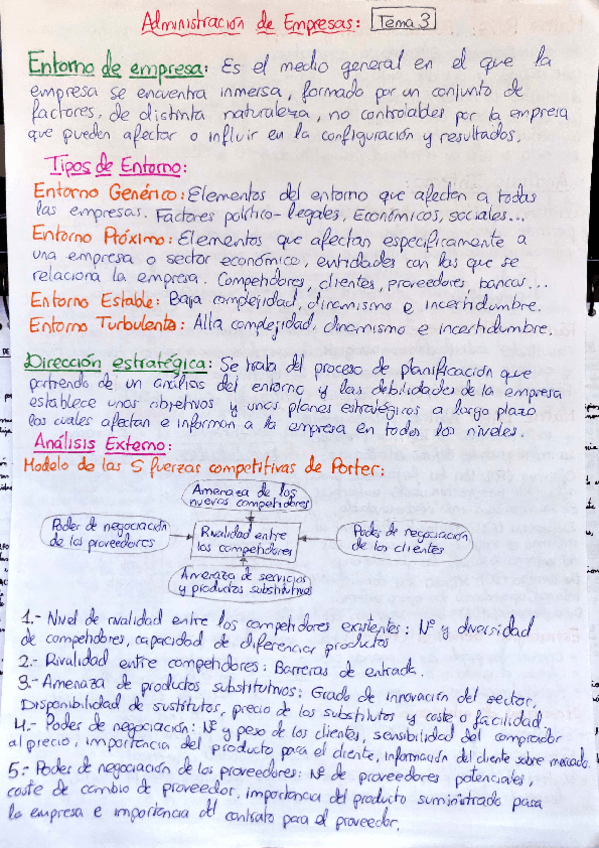 Administración de Empresas: Tema 3
Entorno de empresa: Es el medio general en el que la
empresa se encuentra inmersa, formado por un conjunto de
factores, de distinta naturaleza, no controlables por la empresa
que pueden afectar o influir en la configuración y resultados.
Tipos de Entorno:
Entorno Genérico: Elementos del entorno que afectan a todas
las empresas. Factores político-legales, Económicos, sociales...
Entorno Próximo: Elementos que afectan especificamente a
una empresa o sector económico, entidades con las que se
relaciona la empresa. Competidores, clientes, proveedores, bancos...
Entorno Estable: Baja complejidad, dinamismo e incertidumbre.
Entorno Turbulento: Alta complejidad, dinamismo e incertidumbre.
Dirección estratégica: Se trata del proceso de planificación que
partiendo de un análisis del entorno y las debilidades de la empresa
establece unos objetivos y unos planes estratégicos a largo plazo
los cuales afectan e informan a la empresa en todos los niveles.
Análisis Externo:
Modelo de las 5 fuerzas competitivas de Porter:
Amenaza de los
nuevos competidores
Poder de negociación
de los proveedores
Rivalidad entre
los competidores
Poder de negociación
de los clientes
Amenaza de servicios
y productos substitutivos
1.- Nivel de rivalidad entre los competidores existentes: Nº y diversidad
de competidores, capacidad de diferenciar productos
2.- Rivalidad entre competidores: Barreras de entrada.
3.- Amenaza de productos substitutivos: Grado de innovación del sector,
Disponibilidad de sustitutos, precio de los substitutos y coste o facilidad.
4.- Poder de negociación: Nº y peso de los clientes, sensibilidad del comprador
al precio, importancia del producto para el cliente, información del cliente sobre mercado.
5.- Poder de negociación de los proveedores: Nº de proveedores potenciales,
coste de cambio de proveedor, importancia del producto suministrado para
la empresa e importancia del contrato para el proveedor.